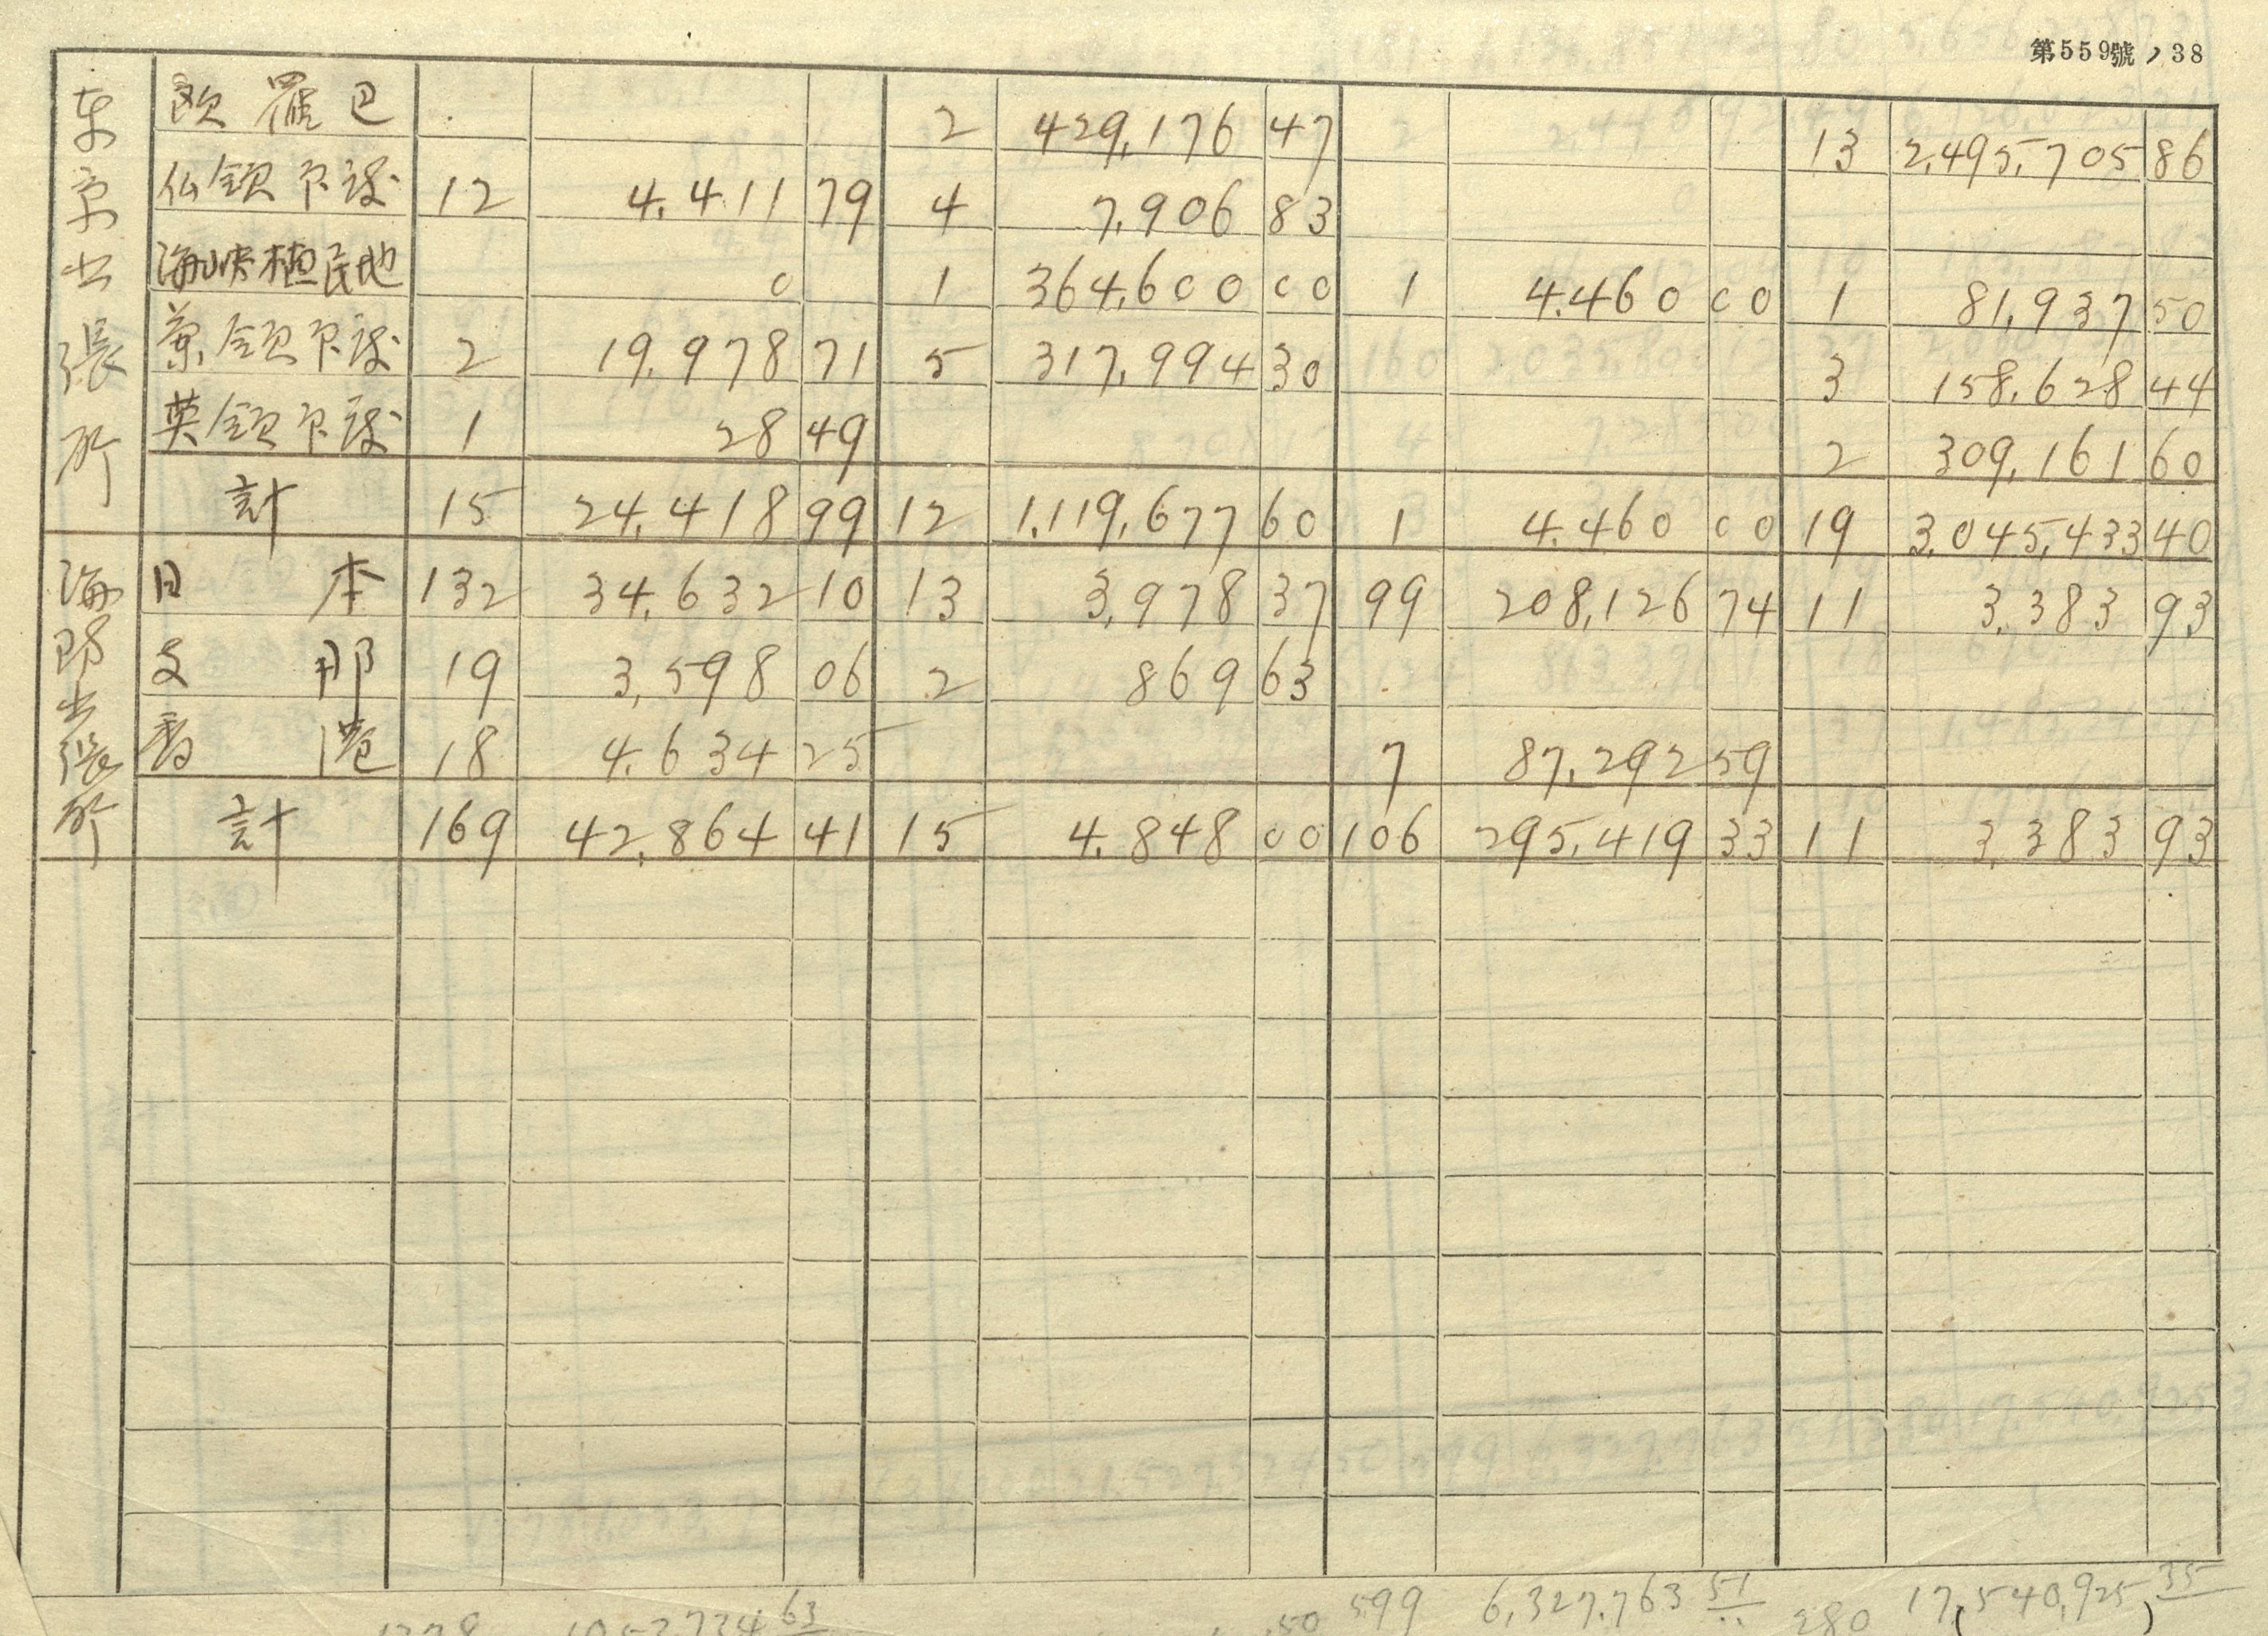 第559號ノ38
東京出張所
欧羅巴 2 429,176 47 13 2,495,705 86
仏領印度 12 4,411 79 4 7,906 83
海峡植民地 0 1 364,600 00 1 4,460 00 1 81,937 50
蘭領印度 2 19,978 71 5 317,994 30 3 158,628 44
英領印度 1 28 49 2 309,161 60
計 15 24,418 99 12 1,119,677 60 1 4,460 00 19 3,045,433 40
海防出張所
日本 132 34,632 10 13 3,978 37 99 208,126 74 11 3,383 93
支那 19 3,598 06 2 869 63
香港 18 4,634 25 7 87,292 59
計 169 42,864 41 15 4,848 00 106 295,419 33 11 3,383 93
599 6,327,763 51 280 17,540,925 35